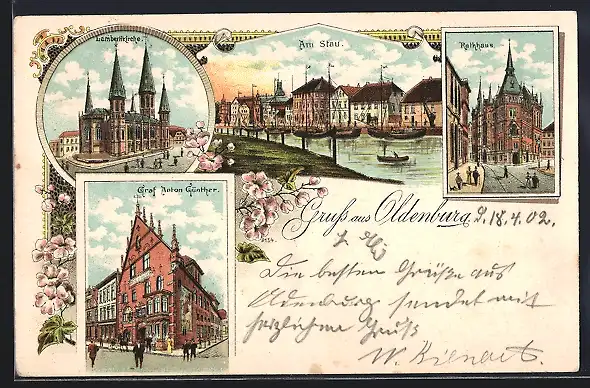 Lambertikirche.
Am Stau.
Rathhaus.
Graf Anton Günther.
Gruss aus Oldenburg, 18.4.02.
Die besten Grüße aus
Oldenburg sendet mit
herzlichem Gruß
W.